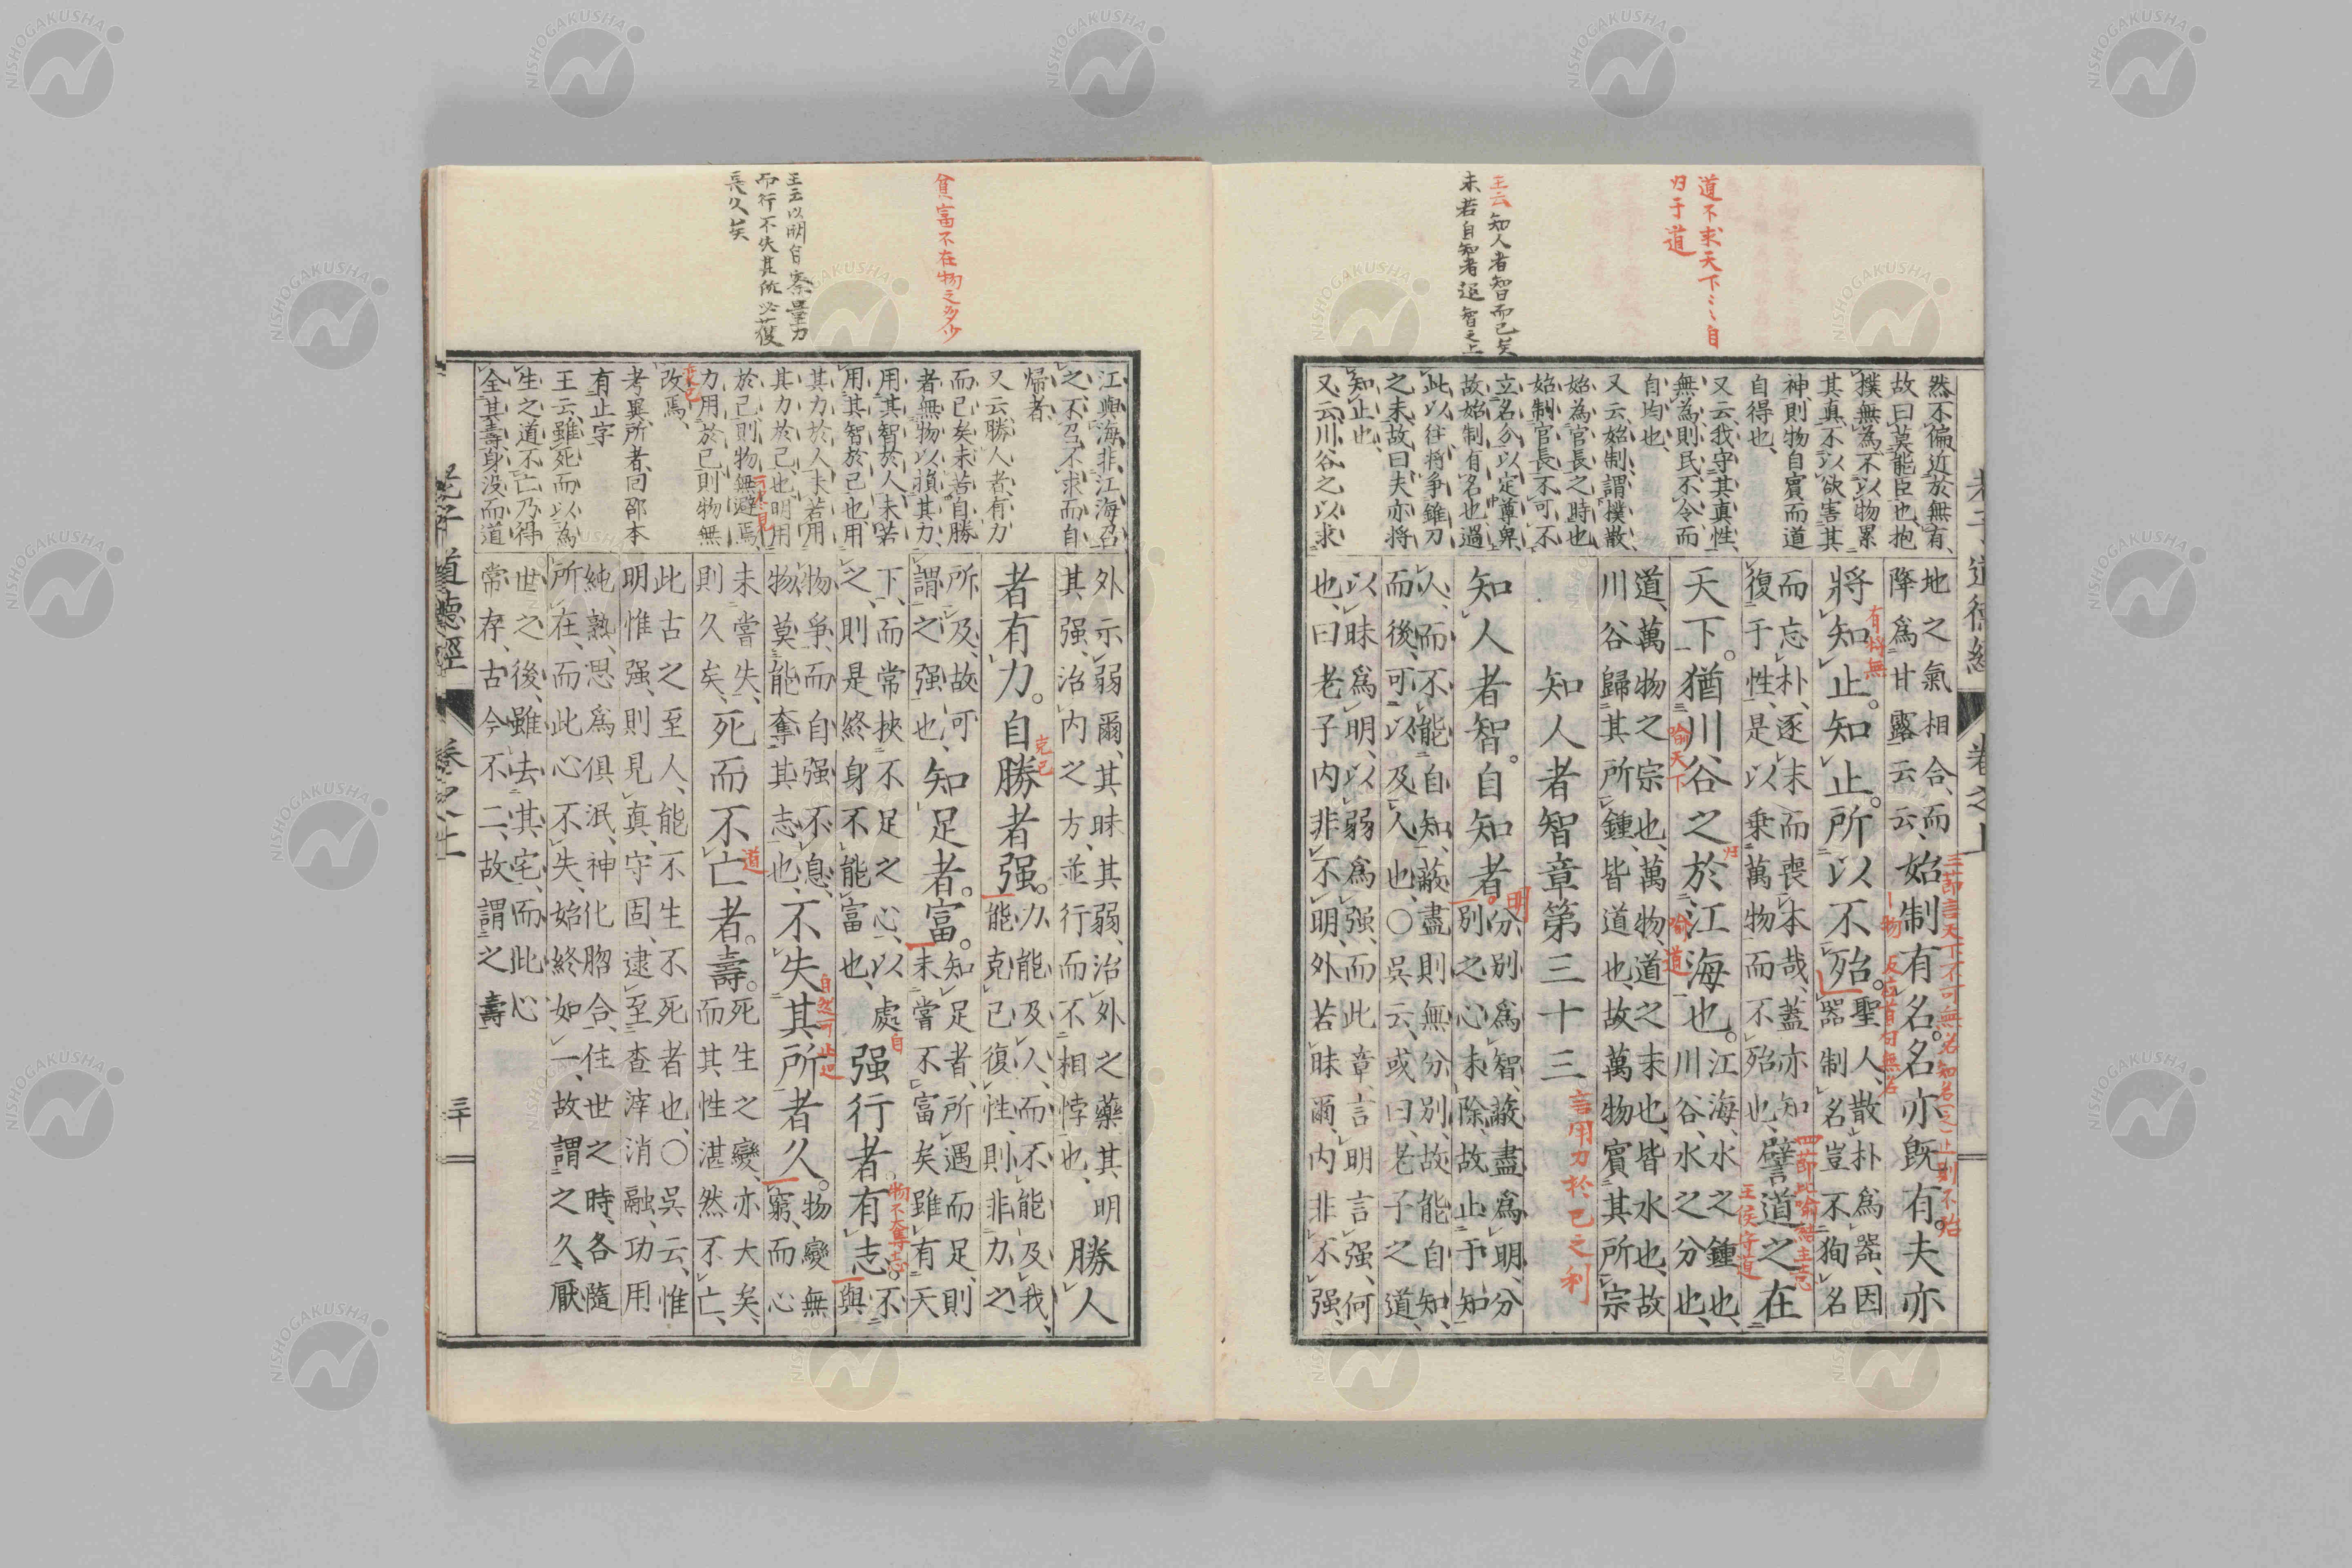 道不求天下〻〻自
归于道
王云知人者智而已矣
未若自知者超智之上
然不偏近於無有
故曰莫能臣也抱
撲無為不以物累
其真不以欲害其
神則物自賓而道
自得也
又云我守其真性
無為則民不令而
自均也
又云始制謂撲散
始為官長之時也
始制官長不可不
立名分以定尊卑
故始制有名也過
此以往將争錐刀
之末故曰夫亦將
知止也
又云川谷之以求
地之氣相合、而
降爲甘露云云、
始制有名。名亦既有。夫亦
將知止。知止。所以不殆。
聖人、散朴爲器、因
器制名豈不狥名
而忘朴、逐末而喪本哉、蓋亦知
復于性、是以乘萬物而不殆也、
譬道之在
天下。猶川谷之於江海也。
江海、水之鍾也、
川谷、水之分也、
道、萬物之宗也、萬物、道之末也、皆水也、故
川谷歸其所鍾、皆道也、故萬物賓其所宗
知人者智章第三十三
言用力於己之利
知人者智。自知者明
分別爲智、蔽盡爲明、分
別之心未除、故止于知
人、而不能自知、蔽盡則無分別、故能自知、
而後可以及人也、○吳云、或曰、老子之道、
以昧爲明、以弱爲强、而此章言明言强、何
也、曰老子内非不明、外若昧爾、内非不强、
三節言天下不可無名知名之止則不殆
反應首句無名
有將無
喻天下
喻道
归
四節比喻結主意
王侯守道
老子道德經
卷之上
貧富不在物之多少
王云以明自察量力
而行不失其所必獲
長久矣
江與海非江海召
之不召不求而自
帰者
又云勝人者有力
而已矣未若自勝
者無物以損其力
用其智於人未若
用其智於己也用
其力於人未若用
其力於己也明用
於己則物無避焉
力用於己則物無
改焉
考異所者囘邵本
有止字
王云雖死而以為
生之道不亡乃得
全其壽身没而道
外示弱爾、其昧其弱、治外之藥其明
其强、治内之方、並行而不相悖也、
勝人
者有力。自勝者强。
力能及人、而不能及我、
能克己復性、則非力之
所及、故可
謂之强也、
知足者。富。
知足者、所遇而足、則
未嘗不富矣雖有天
下、而常挾不足之心、以處
之、則是終身不能富也、
强行者。有志。
不與
物爭、而自强不息、
物莫能奪其志也、
不失其所者久。
物變無窮、而心
未嘗失、
則久矣、
死而不亡者。壽。
死生之變、亦大矣、
而其性湛然不亡、
此古之至人、能不生不死者也、○吳云、惟
明惟强、則見真、守固、逮至查滓消融、功用
純熟、思爲俱泯、神化脗合、住世之時、各隨
所在、而此心不失、始終如一、故謂之久、厭
世之後、雖去其宅、而此心
常存、古今不二、故謂之壽
克己
道
自
自然可止也
物不奪志
老子道德經
卷之上
三十